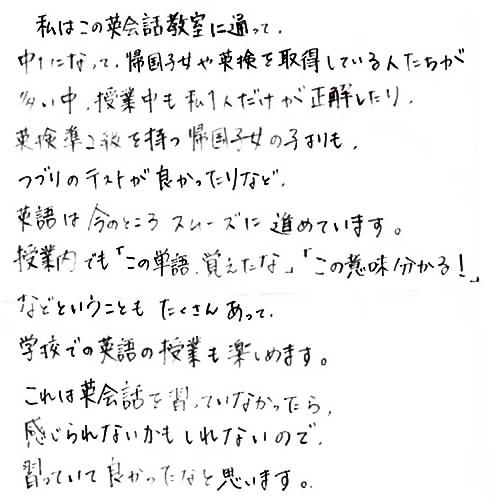 私はこの英会話教室に通って、
中1になって、帰国子女や英検を取得している人たちが
多い中、授業中も私1人だけが正解したり、
英検準2級を持つ帰国子女の子よりも、
つづりのテストが良かったりなど、
英語は今のところスムーズに進めています。
授業内でも「この単語、覚えたな」「この意味分かる!」
などということもたくさんあって、
学校での英語の授業も楽しめます。
これは英会話を習っていなかったら、
感じられないかもしれないので、
習っていて良かったなと思います。